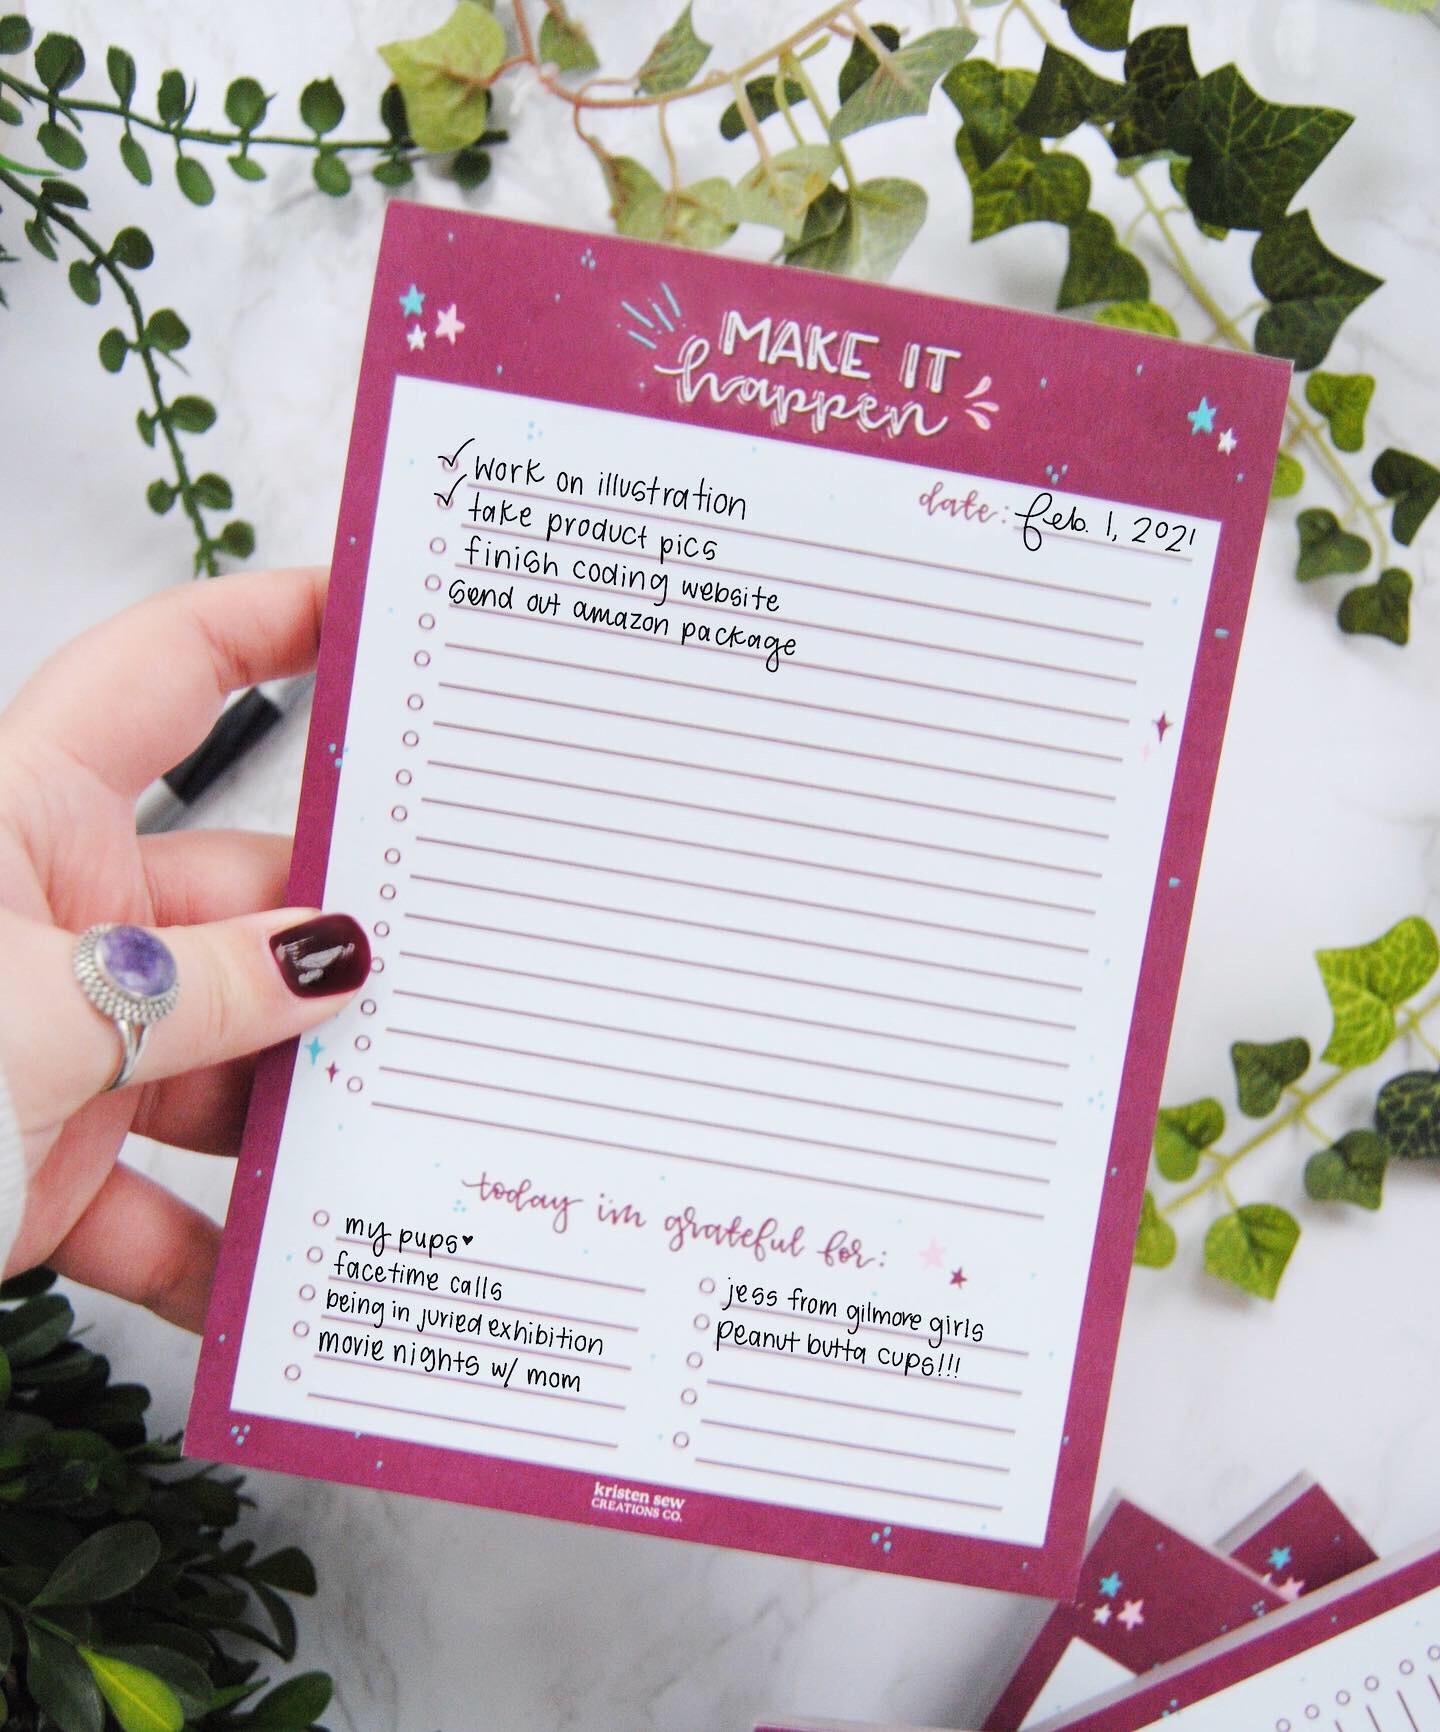 MAKE IT
happen
date: feb. 1, 2021
✓ work on illustration
✓ take product pics
finish coding website
send out amazon package
today i'm grateful for:
my pups♥
facetime calls
being in juried exhibition
movie nights w/ mom
jess from gilmore girls
peanut butta cups!!!
kristen sew
CREATIONS CO.